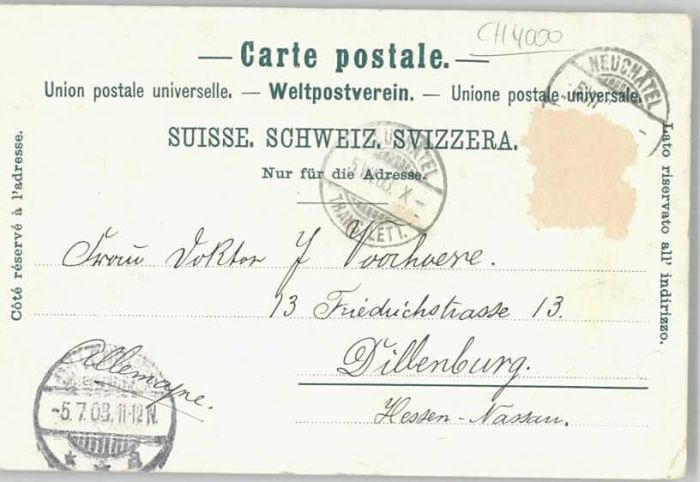 CH4000
— Carte postale. —
Union postale universelle. — Weltpostverein. — Unione postale universale.
SUISSE. SCHWEIZ. SVIZZERA.
Nur für die Adresse.
Côté réservé à l'adresse.
Lato riservato all' indirizzo.
NEUCHATEL
NEUCHATEL
TRANS. LETT.
Frau Doktor J Voorhoeve.
13 Friedrichstrasse 13.
Dillenburg.
Hessen-Nassau.
Allemagne.
-5.7.03.11-12N.
* * a